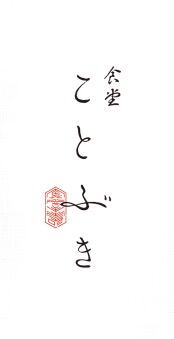 食堂
ことぶき